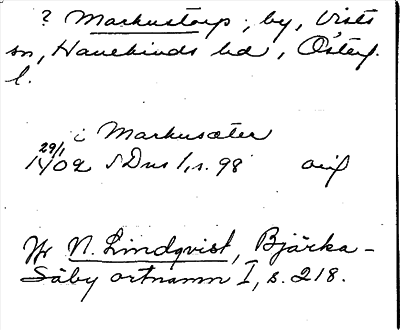 ? Markustorp, by, Vists
sn, Hanekinds hd, Österg.
l.
i Markusæter
29/1
1402 SDns 1, s. 98 orig
Jfr N. Lindqvist, Bjärka-
Säby ortnamn I, s. 218.